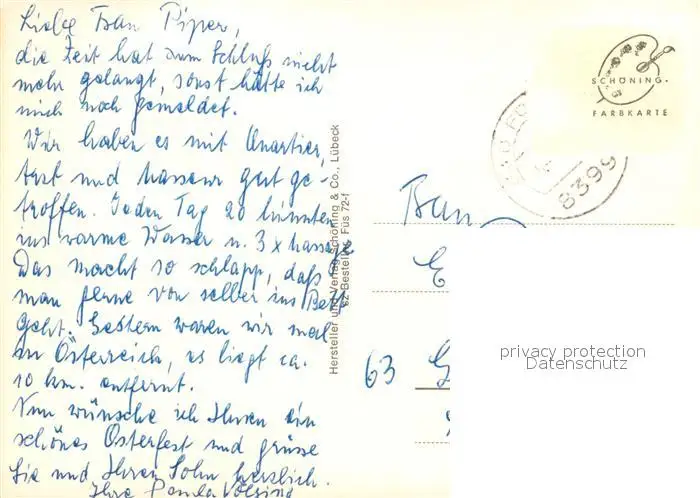 Liebe Frau Piper,
die Zeit hat zum Schluß nicht
mehr gelangt, sonst hätte ich
mich noch gemeldet.
Wir haben es mit Quartier,
Arzt und Masseur gut ge-
troffen. Jeden Tag 20 Minuten
ins warme Wasser u. 3 x Massage
Das macht so schlapp, daß
man gerne von selber ins Bett
geht. Gestern waren wir mal
in Österreich, es liegt ca.
10 km. entfernt.
Nun wünsche ich Ihnen ein
schönes Osterfest und grüsse
Sie und Ihren Sohn herzlich.
Ihre
Hersteller und Verlag Schöning & Co., Lübeck
Bestell Füs 72-f
SCHÖNING
FARBKARTE
8399
Frau
E
63 G
privacy protection
Datenschutz